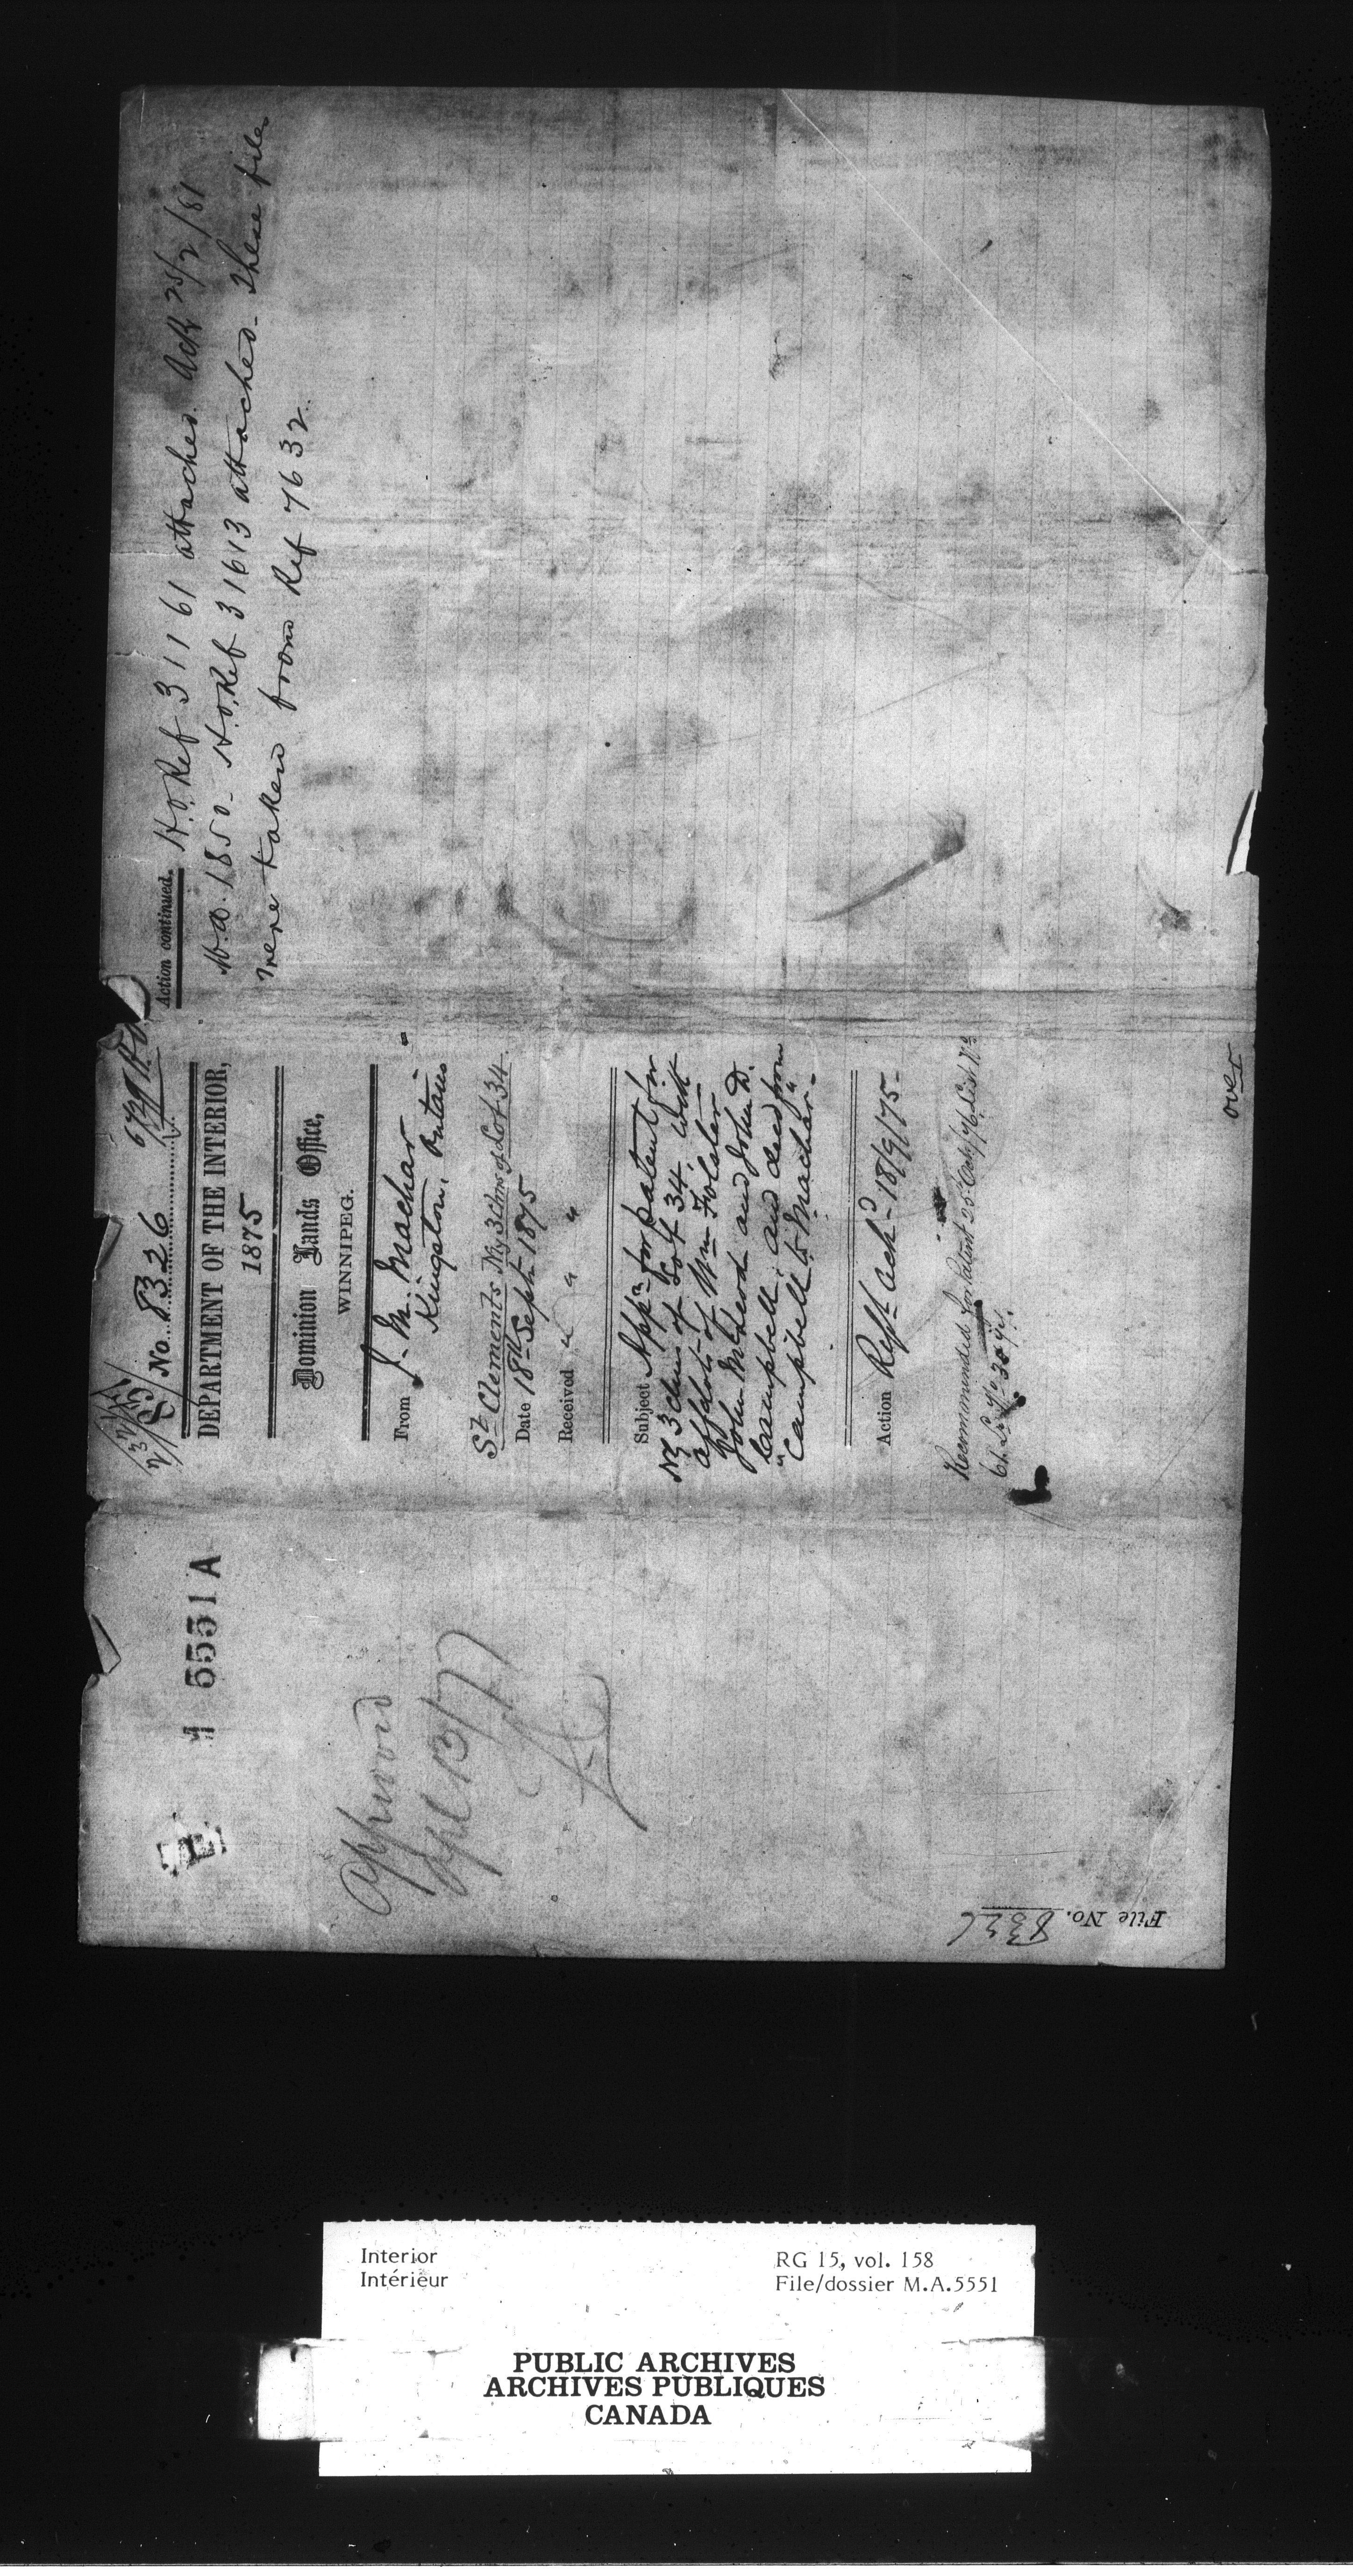 M 5551 A
Approved
Apl 13/77
File No. 8326
No. 8326
DEPARTMENT OF THE INTERIOR,
1875
Dominion Lands Office,
WINNIPEG.
From J. M. Machar
Kingston, Ontario
St Clements Ny 3 chns of Lot 34.
Date 18th Sept. 1875
Received " " "
Subject Appn for patent for
Ny 3 chns of Lot 34, with
affdvts of Wm Folster
John McLeod and John D.
Campbell, and deed from
"Campbell to Machar"
Action Refd Ackd 18/9/75 -
Recommended for Patent 25 Oct/76
over
Action continued.
H.O. Ref 31161 attached. Ack 25/2/81
M.A. 1850 - H.O. Ref 31613 attached - These files
were taken from Ref 7632.
Interior
Intérieur
RG 15, vol. 158
File/dossier M.A.5551
PUBLIC ARCHIVES
ARCHIVES PUBLIQUES
CANADA